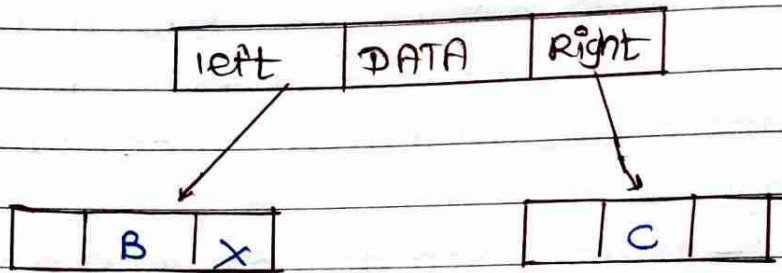 left DATA Right
B X C